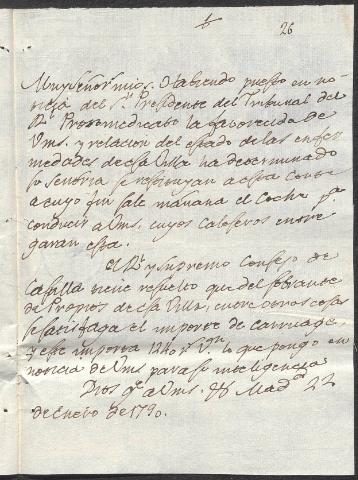 26
Muy señor mio. Habiendo puesto en no-
ticia del Sr. Presidente del Tribunal del
Rl. Protomedicato la favorecida de
Vms. y relacion del estado de las enfer
medades de esa Villa ha determinado
su Señoria se restituyan a esta Corte
a cuyo fin sale mañana el coche pa.
conducir a Vms. cuyos caleseros entre
garan esta.
El Rl. y Supremo Consejo de
Castilla tiene resuelto que del sobrante
de Propios de esa Villa, entre otras cosas
se satisfaga el importe de carruage,
y este importa 1240 rs. Vn. lo que pongo en
noticia de Vms para su inteligencia
Dios ge. a Vms. Madd. 22
de Enero de 1790.